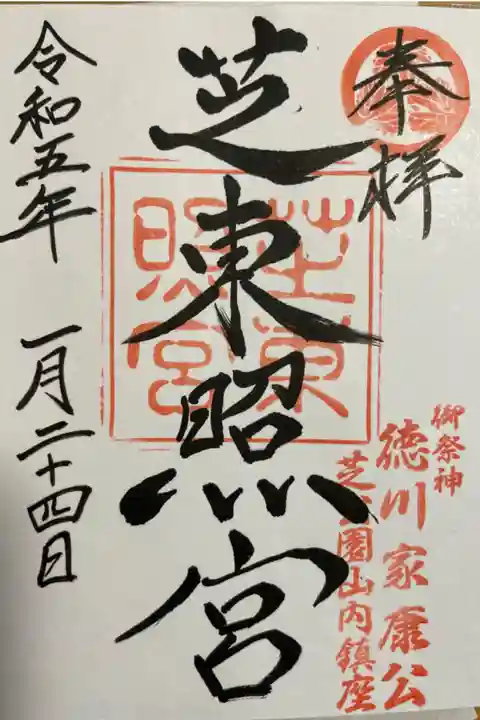 奉拝
御祭神
徳川家康公
芝公園山内鎮座
芝東照宮
芝東照宮
令和五年 一月二十四日